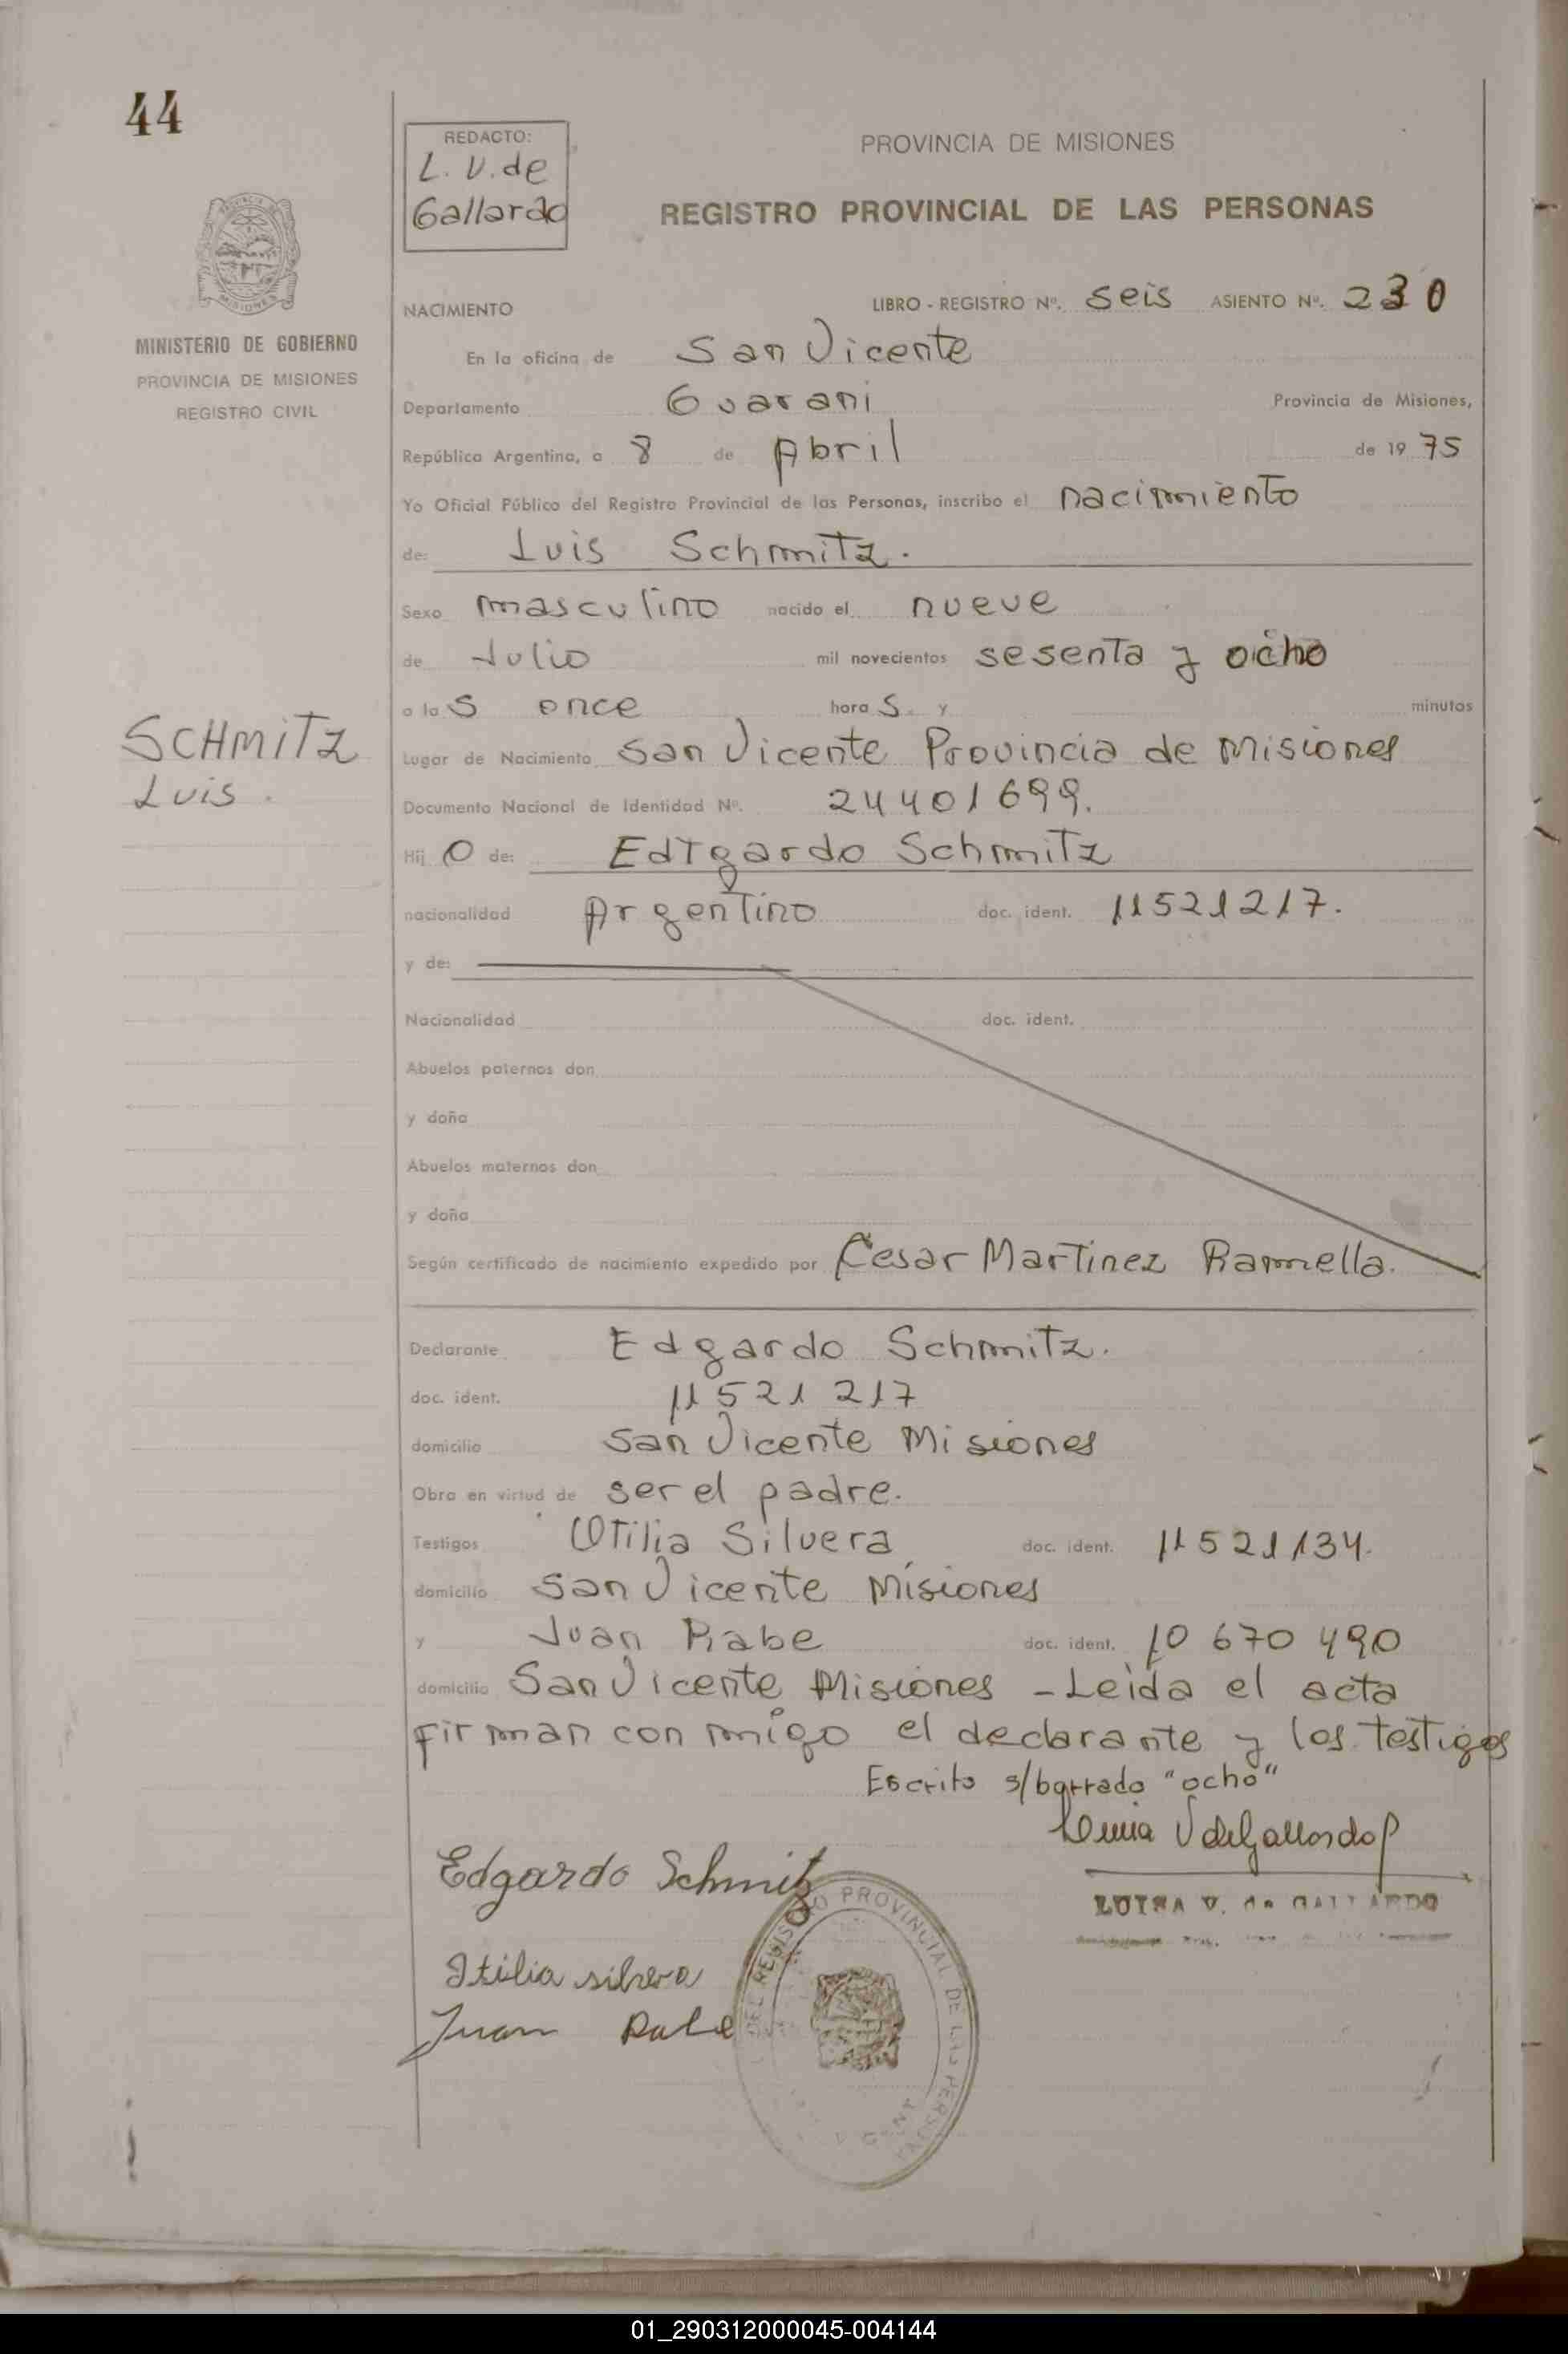 44
REDACTO:
L. V. de
Gallardo
PROVINCIA DE MISIONES
REGISTRO PROVINCIAL DE LAS PERSONAS
MINISTERIO DE GOBIERNO
PROVINCIA DE MISIONES
REGISTRO CIVIL
NACIMIENTO LIBRO - REGISTRO Nº. seis ASIENTO Nº. 230
En la oficina de San Vicente
Departamento Guarani Provincia de Misiones,
República Argentina, a 8 de Abril de 1975
Yo Oficial Público del Registro Provincial de las Personas, inscribo el nacimiento
de: Luis Schmitz.
Sexo masculino nacido el nueve
de Julio mil novecientos sesenta y ocho
a las once horas. y minutos
SCHMITZ
Luis.
Lugar de Nacimiento San Vicente Provincia de Misiones
Documento Nacional de Identidad Nº. 24401699.
Hijo de: Edigardo Schmitz
nacionalidad Argentino doc. ident. 11521217.
y de:
Nacionalidad doc. ident.
Abuelos paternos don
y doña
Abuelos maternos don
y doña
Según certificado de nacimiento expedido por Cesar Martinez Ramella.
Declarante Edgardo Schmitz.
doc. ident. 11521217
domicilio San Vicente Misiones
Obra en virtud de ser el padre.
Testigos Otilia Silvera doc. ident. 11521134.
domicilio San Vicente Misiones
y Juan Rabe doc. ident. 10 670 490
domicilio San Vicente Misiones - Leida el acta
firman con migo el declarante y los testigos
Escrito s/borrado "ocho"
V de Gallardo
Edgardo Schmitz
LUISA V. de GALLARDO
Itilia silvera
Juan Rabe
DEL REGISTRO PROVINCIAL DE LAS PERSONAS
01_290312000045-004144